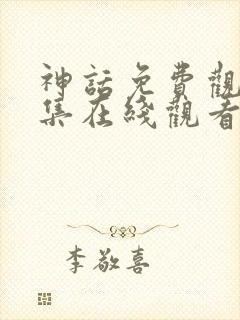 神話免費觀
集在綫觀看
李敬喜